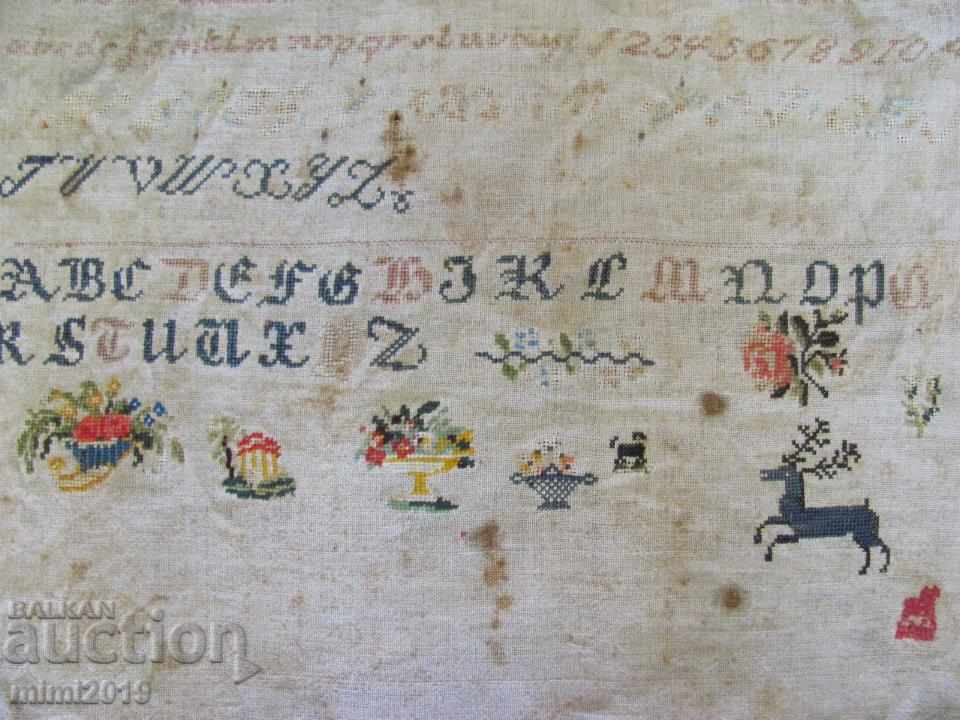 abcdefghiklmnopqrstuvwxy 12345678910
T U V W X Y Z
A B C D E F G H I K L M N O P Q
R S T U U X Z
BALKAN
auction
mimi2019